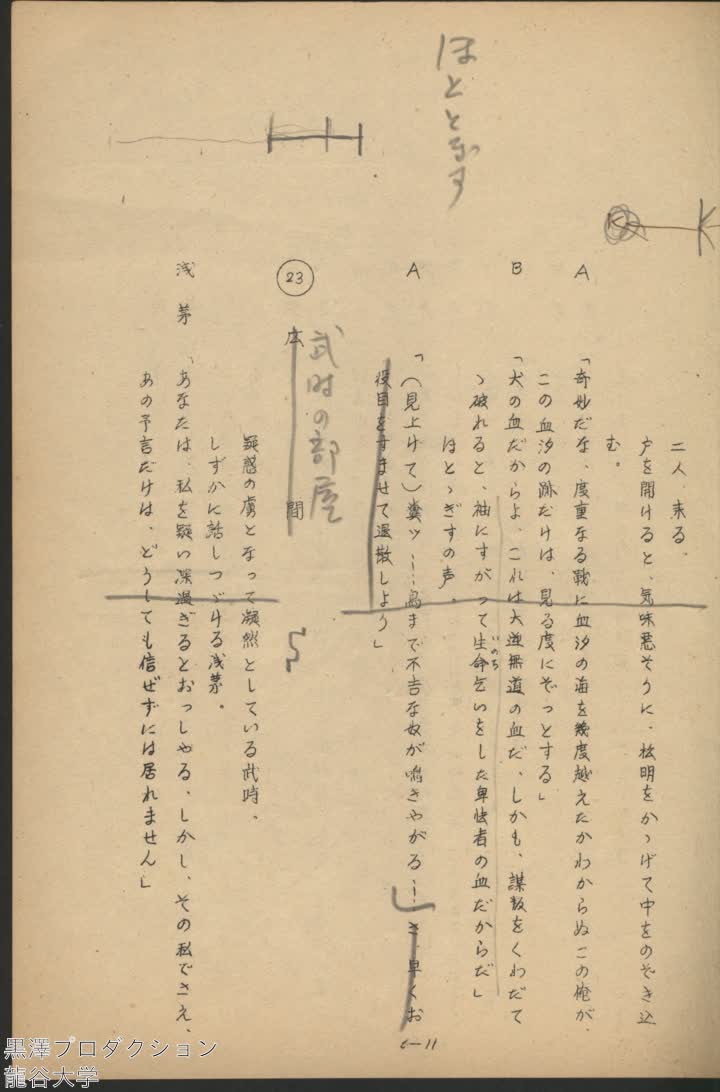 ほととぎす
二人、来る。
戸を開けると、気味悪そうに、松明をかゝげて中をのぞき込
む。
A 「奇妙だな、度重なる戦に血汐の海を幾度越えたかわからぬこの俺が、
この血汐の跡だけは、見る度にぞっとする」
B 「犬の血だからよ、これは大逆無道の血だ、しかも、謀叛をくわだて
ゝ破れると、袖にすがって生命乞いをした卑怯者の血だからだ」
いのち
ほとゝぎすの声。
A 「（見上げて）糞ッ……鳥まで不吉な奴が鳴きやがる……さ、早くお
役目をすませて退散しよう」
23 広間
武時の部屋
疑惑の虜となって凝然としている武時。
しずかに話しつゞける浅茅。
浅茅 「あなたは、私を疑い深過ぎるとおっしゃる、しかし、その私でさえ、
あの予言だけは、どうしても信ぜずには居れません」
黒澤プロダクション
龍谷大学